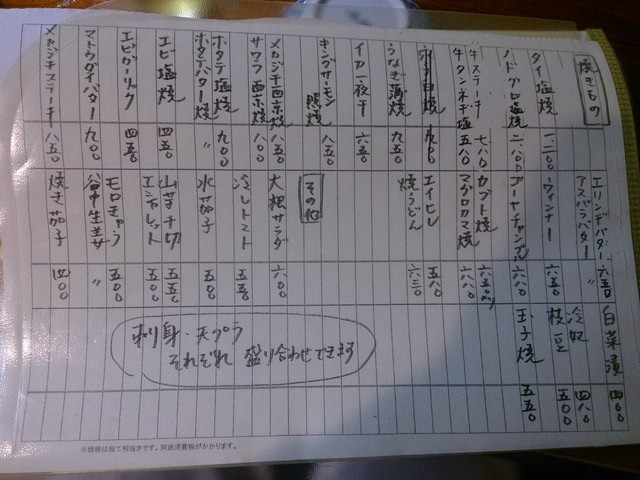 焼きもの
タイ塩焼 一二〇〇
ノドグロ塩焼 二八〇〇
牛ステーキ 七八〇
牛タンネギ塩 五八〇
うなぎ蒲焼 九五〇
イカ一夜干 六五〇
キングサーモン照焼 八五〇
メカジキ西京焼 八五〇
サワラ西京焼 八〇〇
ホタテ塩焼 九〇〇
ホタテバター焼 〃
エビ塩焼 四五〇
エビガーリック 四五〇
マトウダイバター 九〇〇
メカジキステーキ 八五〇
エリンギバター 六五〇
アスパラバター 〃
ウィンナー 六五〇
ゴーヤチャンプル 六八〇
カブト焼 六五〇より
マグロカマ焼 一八八〇
エイヒレ 五八〇
焼うどん 六三〇
その他
大根サラダ 六〇〇
冷しトマト 五五〇
水茄子 五五〇
山芋千切 五五〇
エシャレット 五〇〇
モロキュウ 五〇〇
谷中生生姜 〃
焼き茄子 四〇〇
白菜漬 四〇〇
冷奴 四八〇
枝豆 五〇〇
玉子焼 五五〇
刺身・天プラ
それぞれ 盛り合わせできます
※価格は全て税抜きです。別途消費税がかかります。